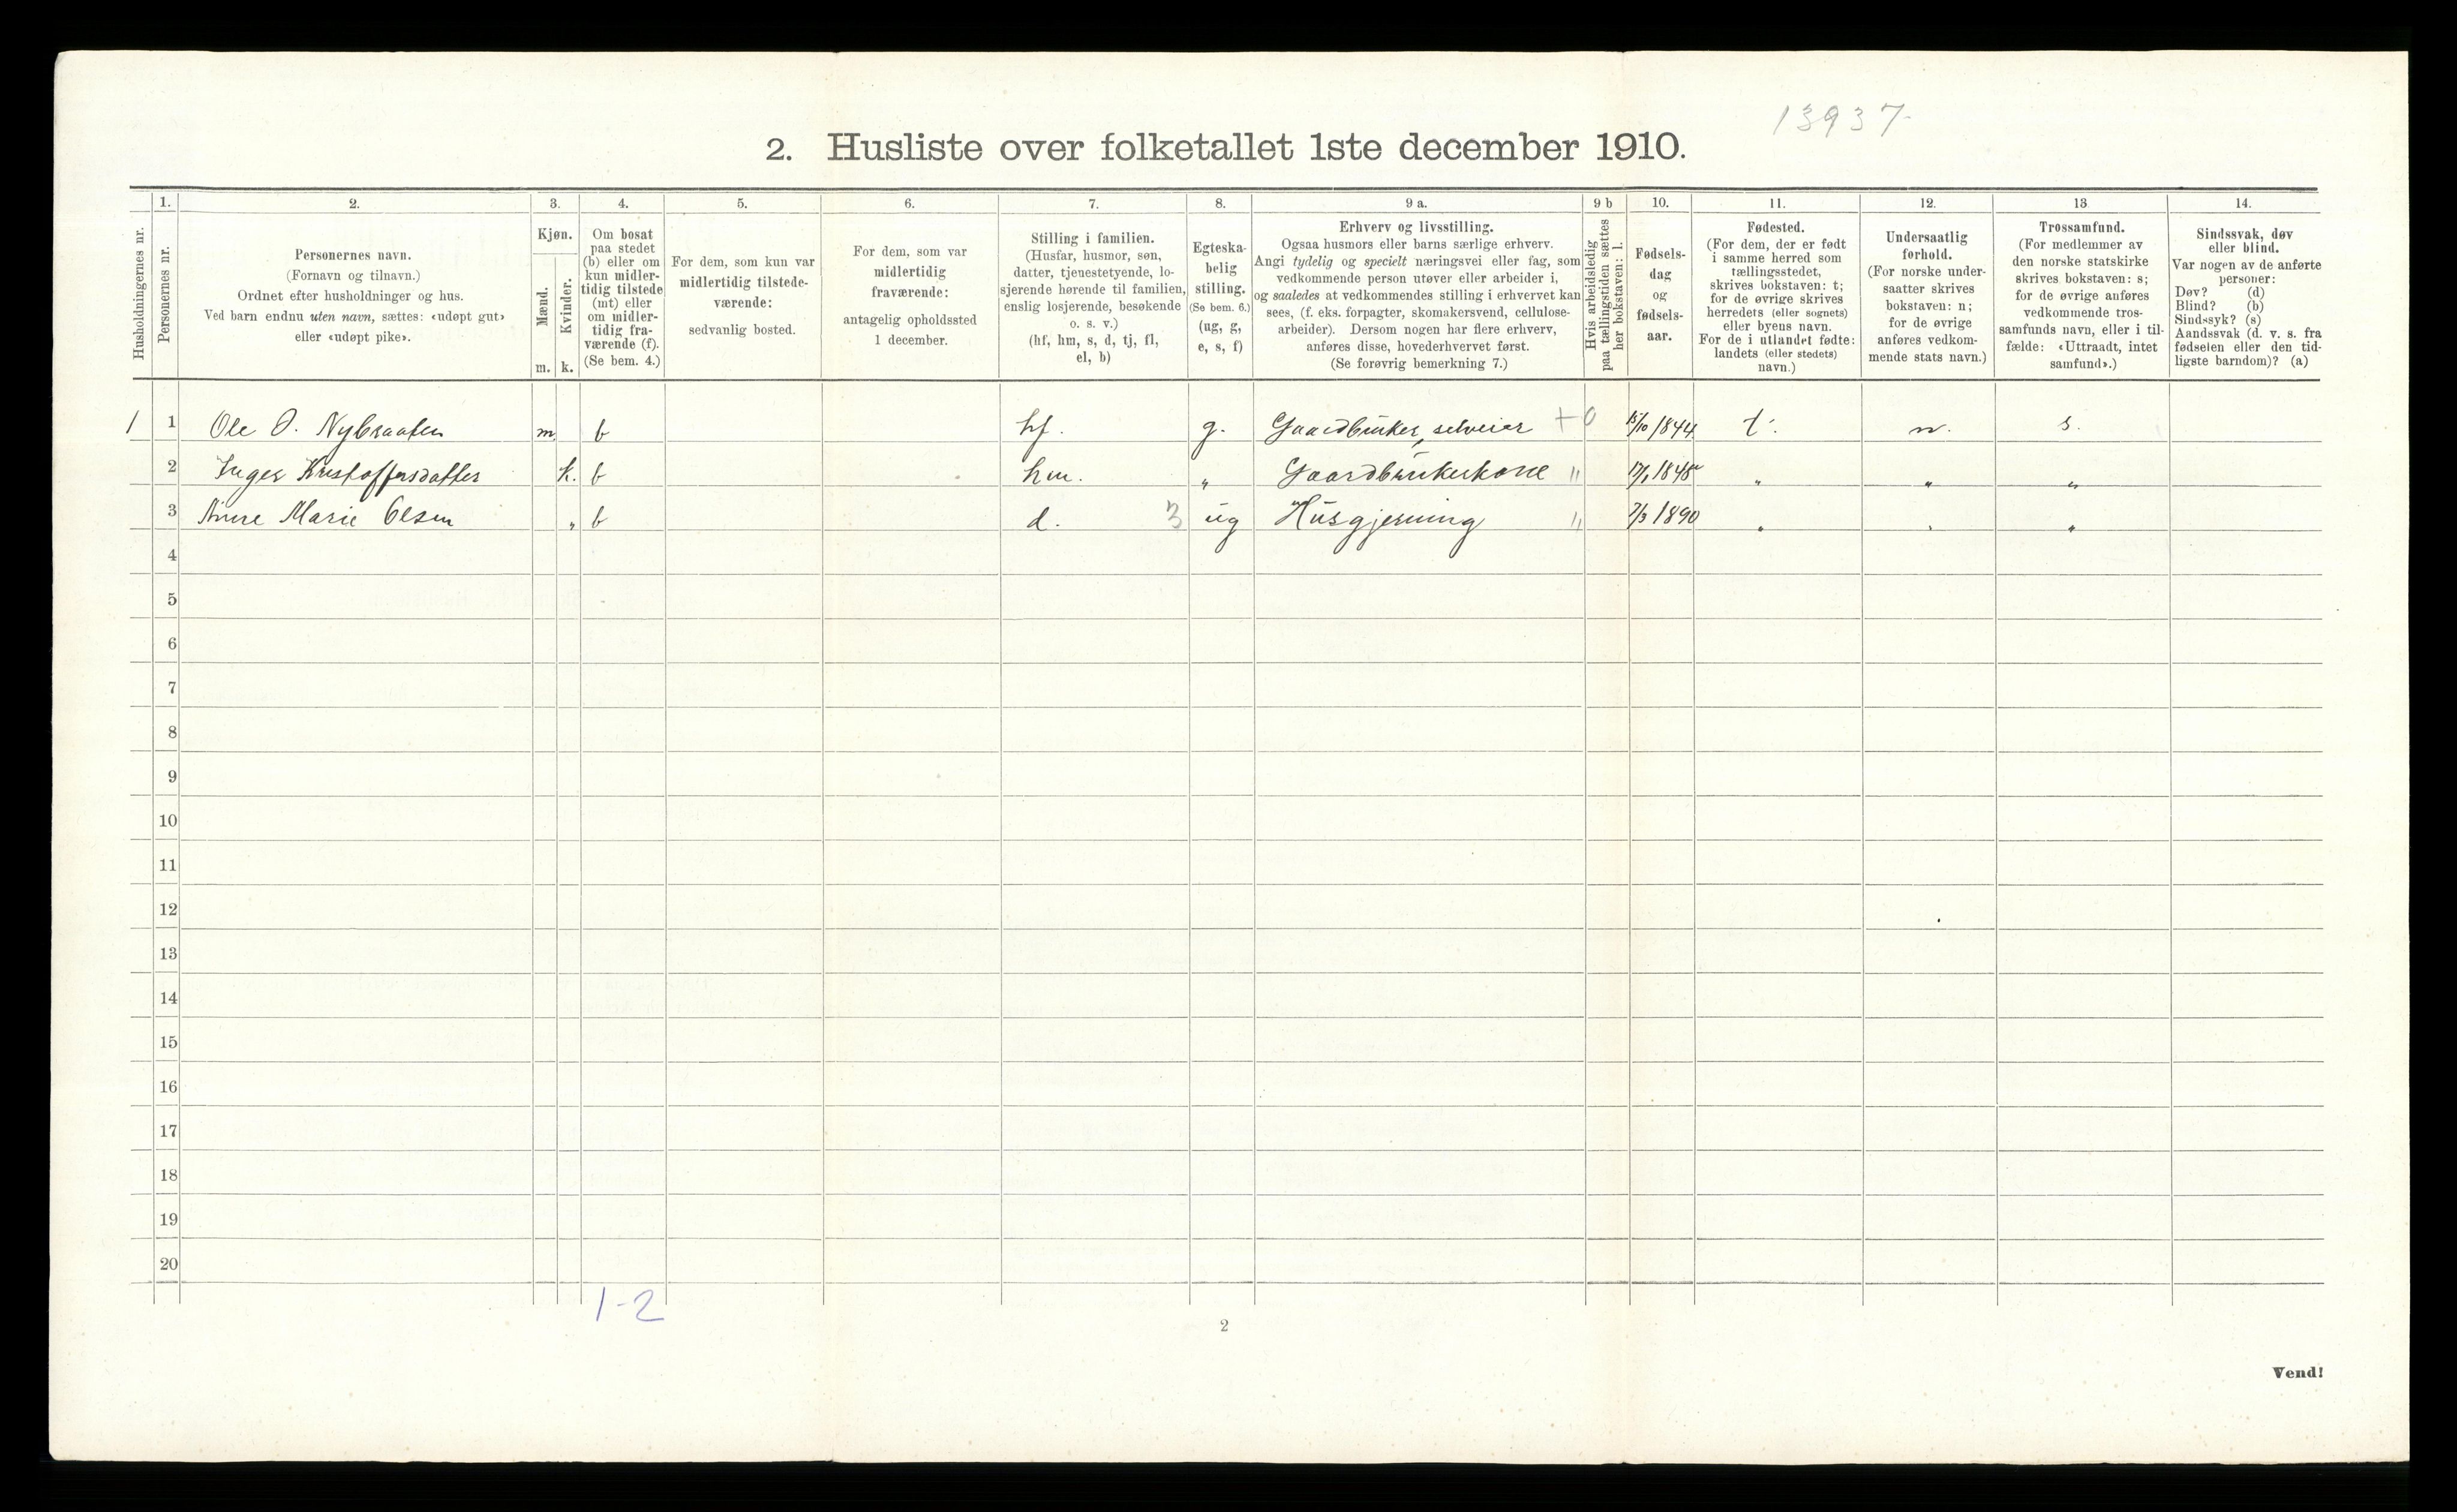 13937
2. Husliste over folketallet 1ste december 1910.
Husholdningernes nr.
1.
Personernes nr.
2.
Personernes navn.
(Fornavn og tilnavn.)
Ordnet efter husholdninger og hus.
Ved barn endnu uten navn, sættes: «udøpt gut»
eller «udøpt pike».
3.
Kjøn.
Mænd.
m.
Kvinder.
k.
4.
Om bosat
paa stedet
(b) eller om
kun midler-
tidig tilstede
(mt) eller
om midler-
tidig fra-
værende (f).
(Se bem. 4.)
5.
For dem, som kun var
midlertidig tilstede-
værende:
sedvanlig bosted.
6.
For dem, som var
midlertidig
fraværende:
antagelig opholdssted
1 december.
7.
Stilling i familien.
(Husfar, husmor, søn,
datter, tjenestetyende, lo-
sjerende hørende til familien,
enslig losjerende, besøkende
o. s. v.)
(hf, hm, s, d, tj, fl,
el, b)
8.
Egteska-
belig
stilling.
(Se bem. 6.)
(ug, g,
e, s, f)
9 a.
Erhverv og livsstilling.
Ogsaa husmors eller barns særlige erhverv.
Angi tydelig og specielt næringsvei eller fag, som
vedkommende person utøver eller arbeider i,
og saaledes at vedkommendes stilling i erhvervet kan
sees, (f. eks. forpagter, skomakersvend, cellulose-
arbeider). Dersom nogen har flere erhverv,
anføres disse, hovederhvervet først.
(Se forøvrig bemerkning 7.)
9 b
Hvis arbeidsledig
paa tællingstiden sættes
her bokstaven: l.
10.
Fødsels-
dag
og
fødsels-
aar.
11.
Fødested.
(For dem, der er født
i samme herred som
tællingsstedet,
skrives bokstaven: t;
for de øvrige skrives
herredets (eller sognets)
eller byens navn.
For de i utlandet fødte:
landets (eller stedets)
navn.)
12.
Undersaatlig
forhold.
(For norske under-
saatter skrives
bokstaven: n;
for de øvrige
anføres vedkom-
mende stats navn.)
13
Trossamfund.
(For medlemmer av
den norske statskirke
skrives bokstaven: s;
for de øvrige anføres
vedkommende tros-
samfunds navn, eller i til-
fælde: «Uttraadt, intet
samfund».)
14.
Sindssvak, døv
eller blind.
Var nogen av de anførte
personer:
Døv? (d)
Blind? (b)
Sindssyk? (s)
Aandssvak (d. v. s. fra
fødselen eller den tid-
ligste barndom)? (a)
1 1 Ole O. Nybraaten m b hf. g. Gaardbruker, selveier +0 15/10 1844 t. n. s.
2 Inger Kristoffersdatter k. b hm. „ Gaardbrukerkone " 17/1 1848 „ „ „
3 Anne Marie Olsen „ b d. 3 ug Husgjerning " 7/3 1890 „ „ „
4
5
6
7
8
9
10
11
12
13
14
15
16
17
18
19
20
1-2
2
Vend!